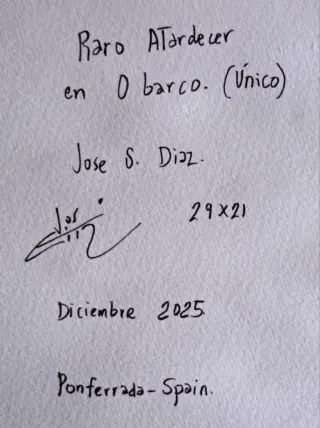 Raro ATardecer
en O barco. (Único)
Jose S. Diaz.
29x21
Diciembre 2025.
Ponferrada-Spain.